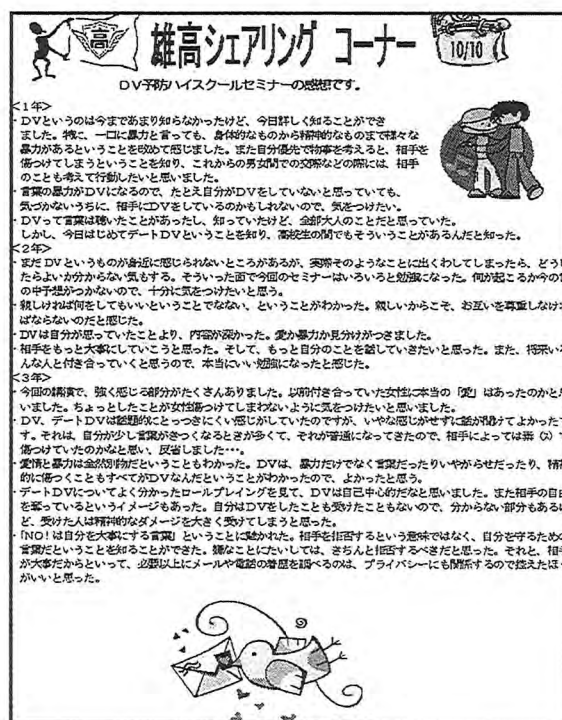 高
雄高シェアリング コーナー
10/10
DV予防ハイスクールセミナーの感想です。
<1年>
・DVというのは今まであまり知らなかったけど、今日詳しく知ることができ
ました。特に、一口に暴力と言っても、身体的なものから精神的なものまで様々な
暴力があるということを改めて感じました。また自分優先で物事を考えると、相手を
傷つけてしまうということを知り、これからの男女間での交際などの際には、相手
のことも考えて行動したいと思いました。
・言葉の暴力がDVになるので、たとえ自分がDVをしていないと思っていても、
気づかないうちに、相手にDVをしているのかもしれないので、気をつけたい。
・DVって言葉は聴いたことがあったし、知っていたけど、全部大人のことだと思っていた。
しかし、今日はじめてデートDVということを知り、高校生の間でもそういうことがあるんだと知った。
<2年>
・まだDVというものが身近に感じられないところがあるが、実際そのようなことに出くわしてしまったら、どうし
たらよいか分からない気もする。そういった面で今回のセミナーはいろいろと勉強になった。何が起こるか今の
の中予想がつかないので、十分に気をつけたいと思う。
・親しければ何をしてもいいということでなない、ということがわかった。親しいからこそ、お互いを尊重しなけれ
ばならないのだと感じた。
・DVは自分が思っていたことより、内容が深かった。愛か暴力か見分けがつきました。
・相手をもっと大事にしていこうと思った。そして、もっと自分のことを話していきたいと思った。また、将来いろ
んな人と付き合っていくと思うので、本当にいい勉強になったと感じた。
<3年>
・今回の講演で、強く感じる部分がたくさんありました。以前付き合っていた女性に本当の「愛」はあったのかと思
いました。ちょっとしたことが女性傷つけてしまわないように気をつけたいと思いました。
・DV、デートDVは話題的にとっつきにくい感じがしていたのですが、いやな感じがせずに話が聞けてよかったで
す。それは、自分が少し言葉がきつくなるときが多くて、それが普通になってきたので、相手によっては素(ス)で
傷つけていたのかなと思い、反省しました・・・。
・愛情と暴力は全然別物だということもわかった。DVは、暴力だけでなく言葉だったりいやがらせだったり、精神
的に傷つくこともすべてがDVなんだということがわかったので、よかったと思う。
・デートDVについてよく分かったロールプレイングを見て、DVは自己中心的だなと思いました。また相手の自由
を奪っているというイメージもあった。自分はDVをしたことも受けたこともないので、分からない部分もあるけ
ど、受けた人は精神的なダメージを大きく受けてしまうと思った。
・「NO!は自分を大事にする言葉」ということに驚かれた。相手を拒否するという意味ではなく、自分を守るための
言葉だということを知ることができた。嫌なことにたいしては、きちんと拒否するべきだと思った。それと、相手
が大事だからといって、必要以上にメールや電話の着歴を調べるのは、プライバシーにも関係するので控えたほう
がいいと思った。